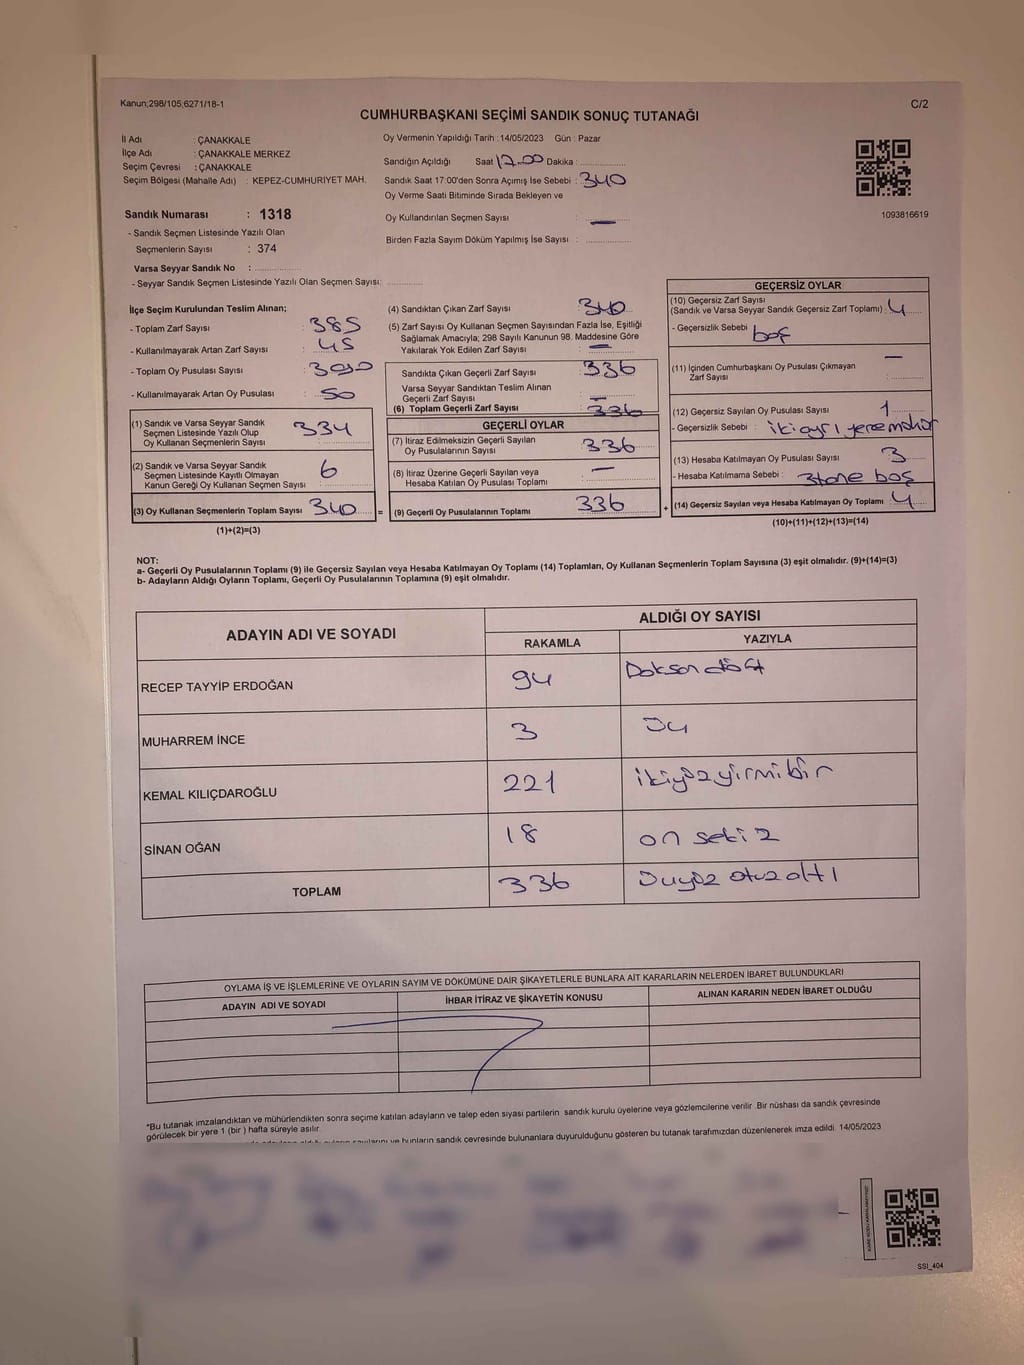 Kanun;298/105;6271/18-1
C/2
CUMHURBAŞKANI SEÇİMİ SANDIK SONUÇ TUTANAĞI
İl Adı : ÇANAKKALE
İlçe Adı : ÇANAKKALE MERKEZ
Seçim Çevresi : ÇANAKKALE
Seçim Bölgesi (Mahalle Adı) : KEPEZ-CUMHURİYET MAH.
Sandık Numarası : 1318
- Sandık Seçmen Listesinde Yazılı Olan
Seçmenlerin Sayısı : 374
Varsa Seyyar Sandık No :
- Seyyar Sandık Seçmen Listesinde Yazılı Olan Seçmen Sayısı:
Oy Vermenin Yapıldığı Tarih : 14/05/2023 Gün : Pazar
Sandığın Açıldığı Saat 17.00 Dakika :
Sandık Saat 17:00'den Sonra Açımış İse Sebebi : 340
Oy Verme Saati Bitiminde Sırada Bekleyen ve
Oy Kullandırılan Seçmen Sayısı : —
Birden Fazla Sayım Döküm Yapılmış İse Sayısı :
1093816619
İlçe Seçim Kurulundan Teslim Alınan;
- Toplam Zarf Sayısı : 385
- Kullanılmayarak Artan Zarf Sayısı : 45
- Toplam Oy Pusulası Sayısı :
- Kullanılmayarak Artan Oy Pusulası : 50
(1) Sandık ve Varsa Seyyar Sandık
Seçmen Listesinde Yazılı Olup
Oy Kullanan Seçmenlerin Sayısı 334
(2) Sandık ve Varsa Seyyar Sandık
Seçmen Listesinde Kayıtlı Olmayan
Kanun Gereği Oy Kullanan Seçmen Sayısı 6
(3) Oy Kullanan Seçmenlerin Toplam Sayısı 340 =
(1)+(2)=(3)
(4) Sandıktan Çıkan Zarf Sayısı 340
(5) Zarf Sayısı Oy Kullanan Seçmen Sayısından Fazla İse, Eşitliği
Sağlamak Amacıyla; 298 Sayılı Kanunun 98. Maddesine Göre
Yakılarak Yok Edilen Zarf Sayısı : —
Sandıkta Çıkan Geçerli Zarf Sayısı : 336
Varsa Seyyar Sandıktan Teslim Alınan
Geçerli Zarf Sayısı : —
(6) Toplam Geçerli Zarf Sayısı : 336
GEÇERLİ OYLAR
(7) İtiraz Edilmeksizin Geçerli Sayılan
Oy Pusulalarının Sayısı : 336
(8) İtiraz Üzerine Geçerli Sayılan veya
Hesaba Katılan Oy Pusulası Toplamı —
(9) Geçerli Oy Pusulalarının Toplamı 336 +
GEÇERSİZ OYLAR
(10) Geçersiz Zarf Sayısı
(Sandık ve Varsa Seyyar Sandık Geçersiz Zarf Toplamı) : 4
- Geçersizlik Sebebi : boş
(11) İçinden Cumhurbaşkanı Oy Pusulası Çıkmayan
Zarf Sayısı : —
(12) Geçersiz Sayılan Oy Pusulası Sayısı : 1
- Geçersizlik Sebebi : iki ayrı yere mühür
(13) Hesaba Katılmayan Oy Pusulası Sayısı : 3
- Hesaba Katılmama Sebebi : 3 tane boş
(14) Geçersiz Sayılan veya Hesaba Katılmayan Oy Toplamı 4
(10)+(11)+(12)+(13)=(14)
NOT:
a- Geçerli Oy Pusulalarının Toplamı (9) ile Geçersiz Sayılan veya Hesaba Katılmayan Oy Toplamı (14) Toplamları, Oy Kullanan Seçmenlerin Toplam Sayısına (3) eşit olmalıdır. (9)+(14)=(3)
b- Adayların Aldığı Oyların Toplamı, Geçerli Oy Pusulalarının Toplamına (9) eşit olmalıdır.
ADAYIN ADI VE SOYADI ALDIĞI OY SAYISI
RAKAMLA YAZIYLA
RECEP TAYYİP ERDOĞAN 94 Doksan dört
MUHARREM İNCE 3
KEMAL KILIÇDAROĞLU 221 ikiyüzyirmibir
SİNAN OĞAN 18 on sekiz
TOPLAM 336 otuzaltı
OYLAMA İŞ VE İŞLEMLERİNE VE OYLARIN SAYIM VE DÖKÜMÜNE DAİR ŞİKAYETLERLE BUNLARA AİT KARARLARIN NELERDEN İBARET BULUNDUKLARI
ADAYIN ADI VE SOYADI İHBAR İTİRAZ VE ŞİKAYETİN KONUSU ALINAN KARARIN NEDEN İBARET OLDUĞU
*Bu tutanak imzalandıktan ve mühürlendikten sonra seçime katılan adayların ve talep eden siyasi partilerin sandık kurulu üyelerine veya gözlemcilerine verilir. Bir nüshası da sandık çevresinde
görülecek bir yere 1 (bir) hafta süreyle asılır.
ve bunların sandık çevresinde bulunanlara duyurulduğunu gösteren bu tutanak tarafımızdan düzenlenerek imza edildi. 14/05/2023
SSI_404